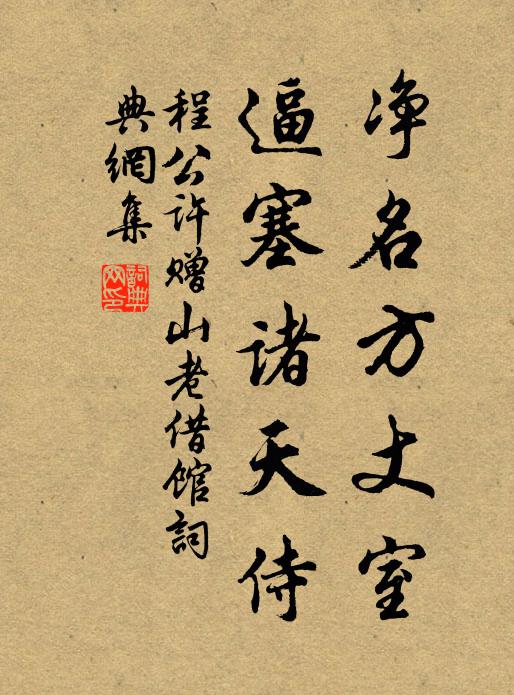 净名方丈室
逼塞诸天侍
程公许赠山老借馆詞
典網集
詞典网印